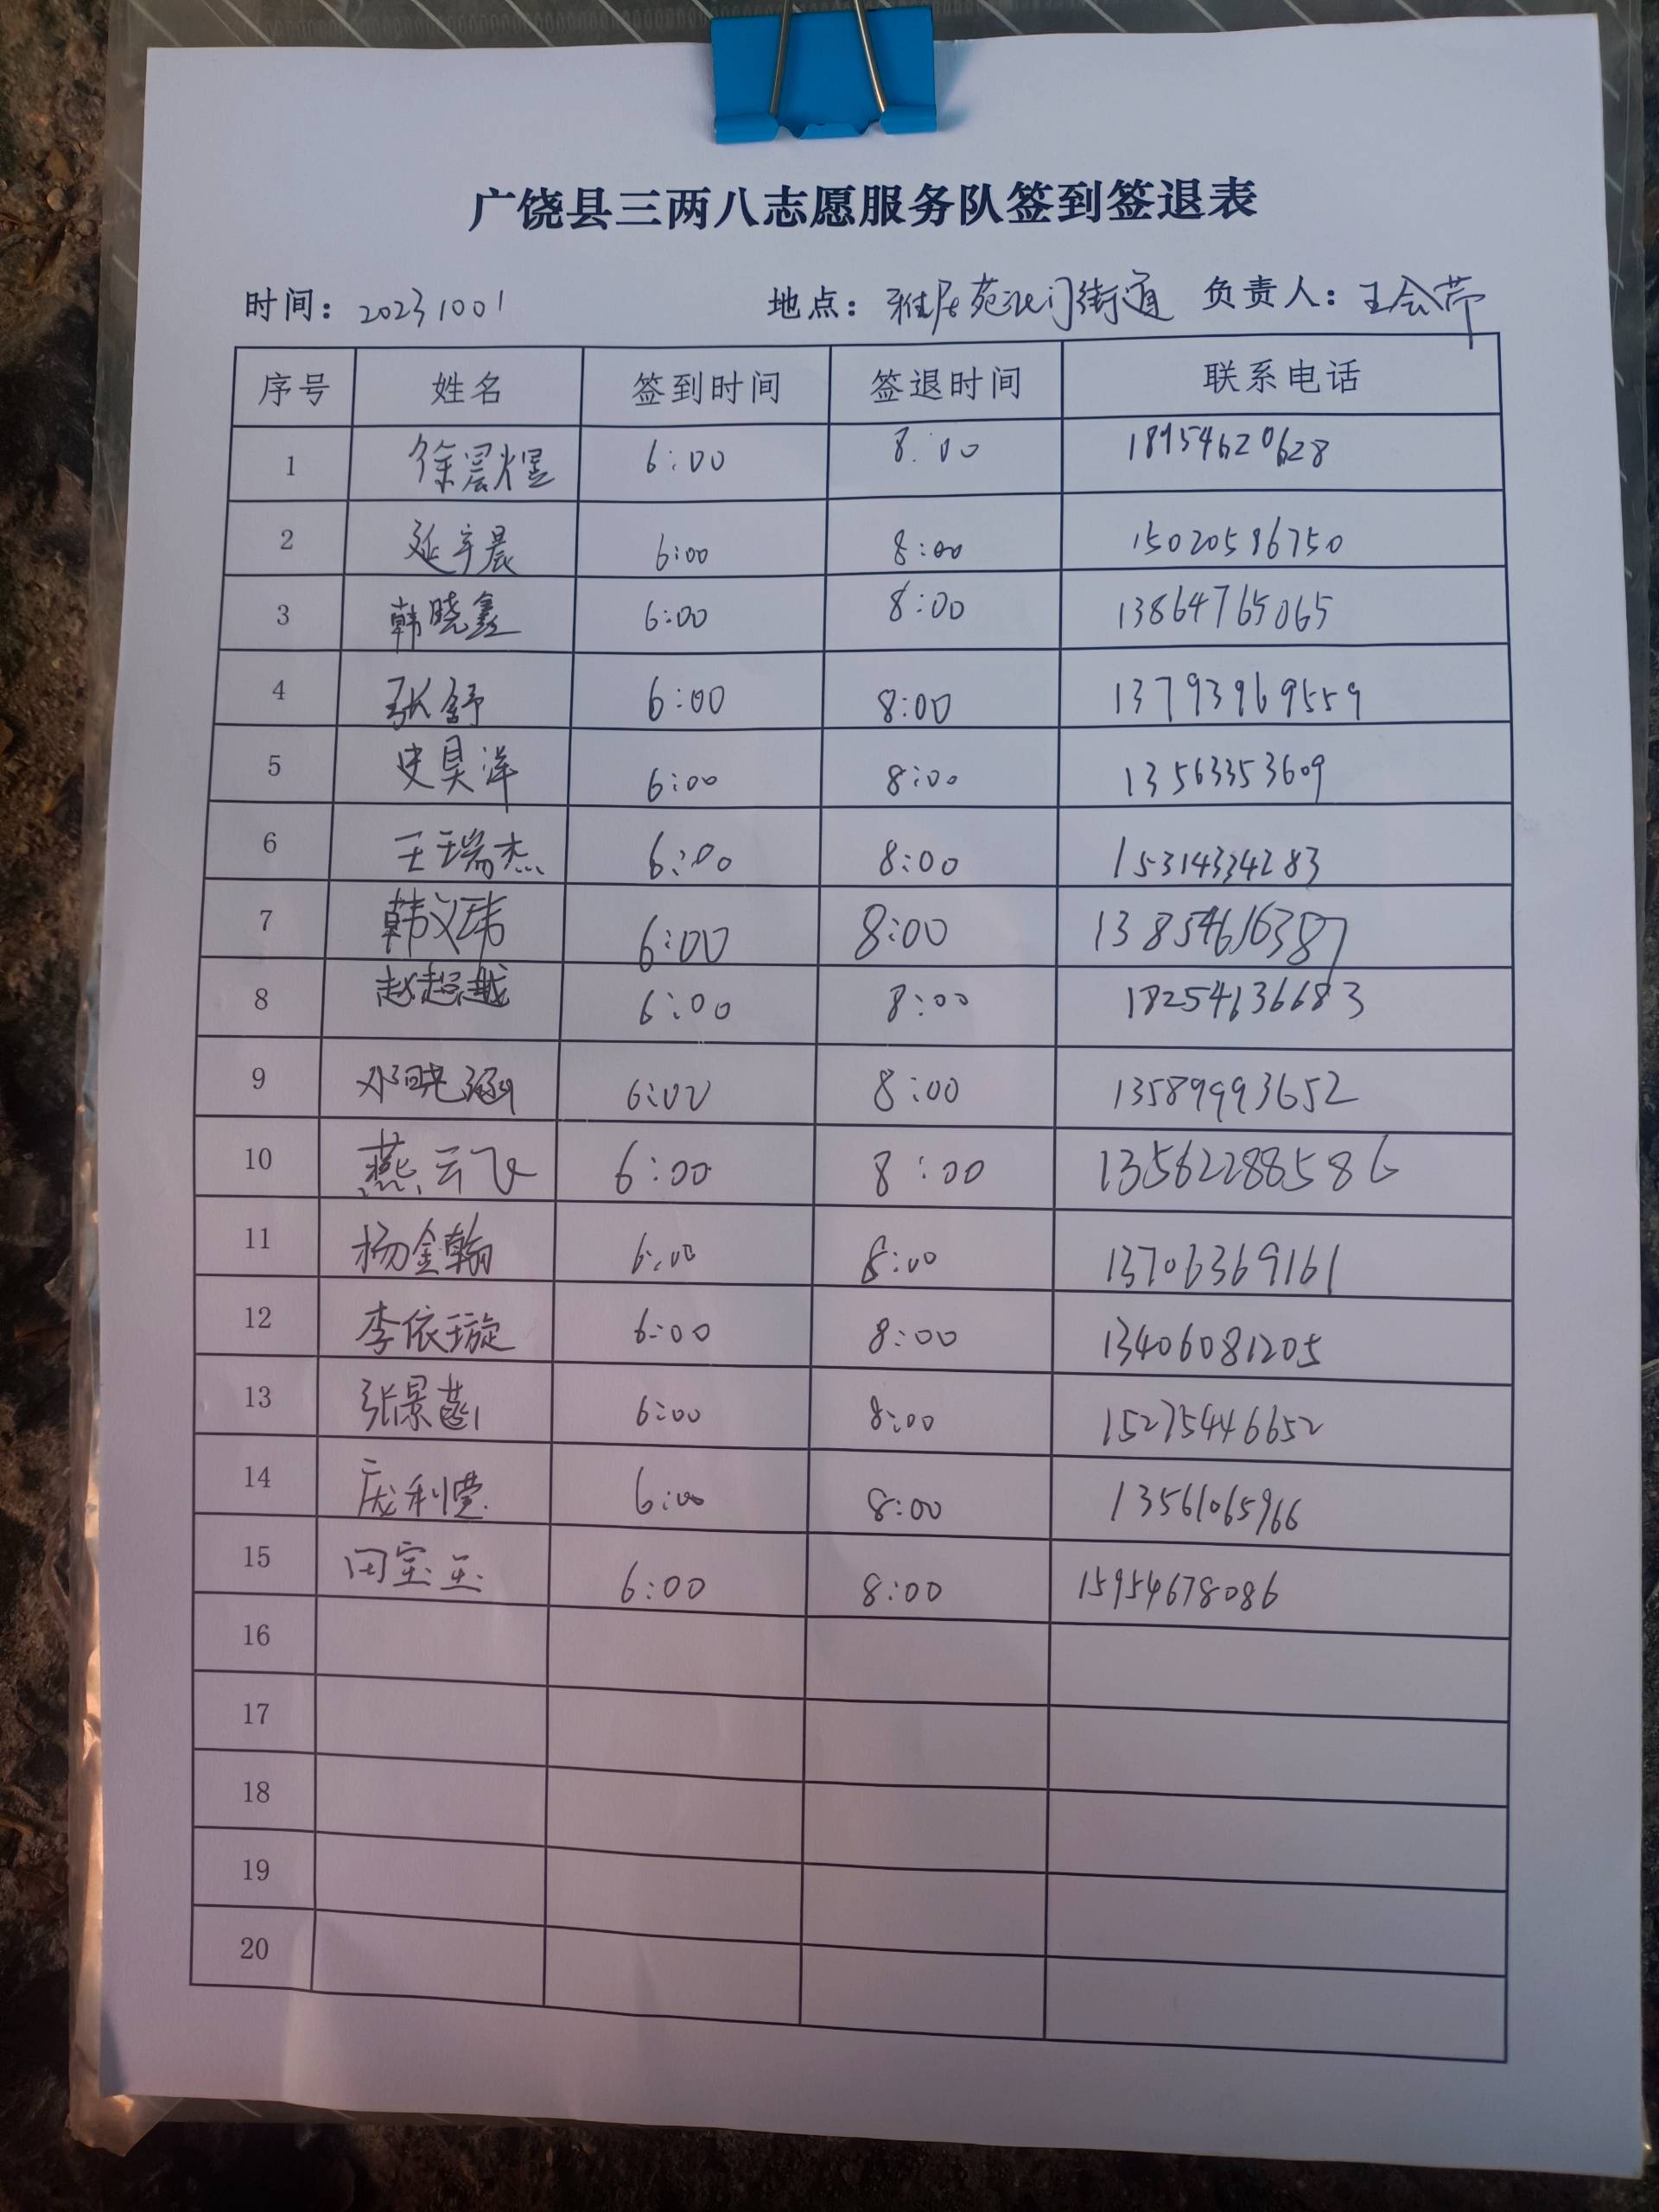 广饶县三两八志愿服务队签到签退表
时间：20231001 地点：雅居苑北门街道 负责人：王会芹
序号 姓名 签到时间 签退时间 联系电话
1 徐晨煜 6:00 8:00 18954620628
2 延宇晨 6:00 8:00 15020586750
3 韩晓鑫 6:00 8:00 13864765065
4 张舒 6:00 8:00 13793969559
5 史昊洋 6:00 8:00 13563353609
6 王瑞杰 6:00 8:00 15314334283
7 韩义玮 6:00 8:00 13854616387
8 赵超越 6:00 8:00 18254636683
9 邓晓涵 6:00 8:00 13589993652
10 燕云飞 6:00 8:00 13562288586
11 杨金翰 6:00 8:00 13706369161
12 李依璇 6:00 8:00 13406081205
13 张景菡 6:00 8:00 15275446652
14 庞利莹 6:00 8:00 13561065966
15 田宝玉 6:00 8:00 15954678086
16
17
18
19
20